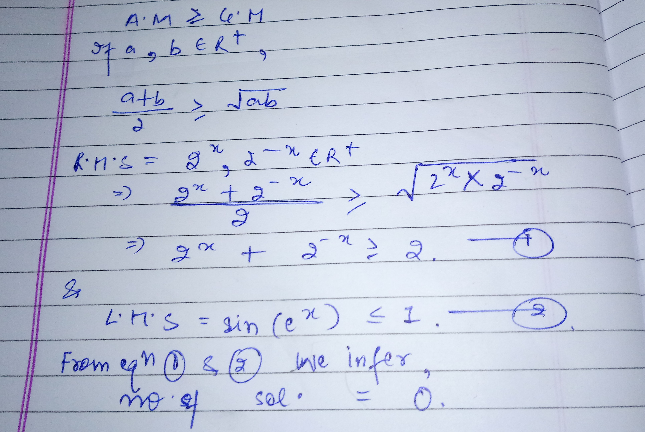 A.M ≥ G.M
If a, b ∈ R⁺,
(a+b)/2 ≥ √ab
R.H.S = 2ˣ, 2⁻ˣ ∈ R⁺
⇒ (2ˣ + 2⁻ˣ)/2 ≥ √(2ˣ × 2⁻ˣ)
⇒ 2ˣ + 2⁻ˣ ≥ 2. — ①
&
L.H.S = sin (eˣ) ≤ 1. — ②
From eqⁿ ① & ② we infer,
no. of sol. = 0.